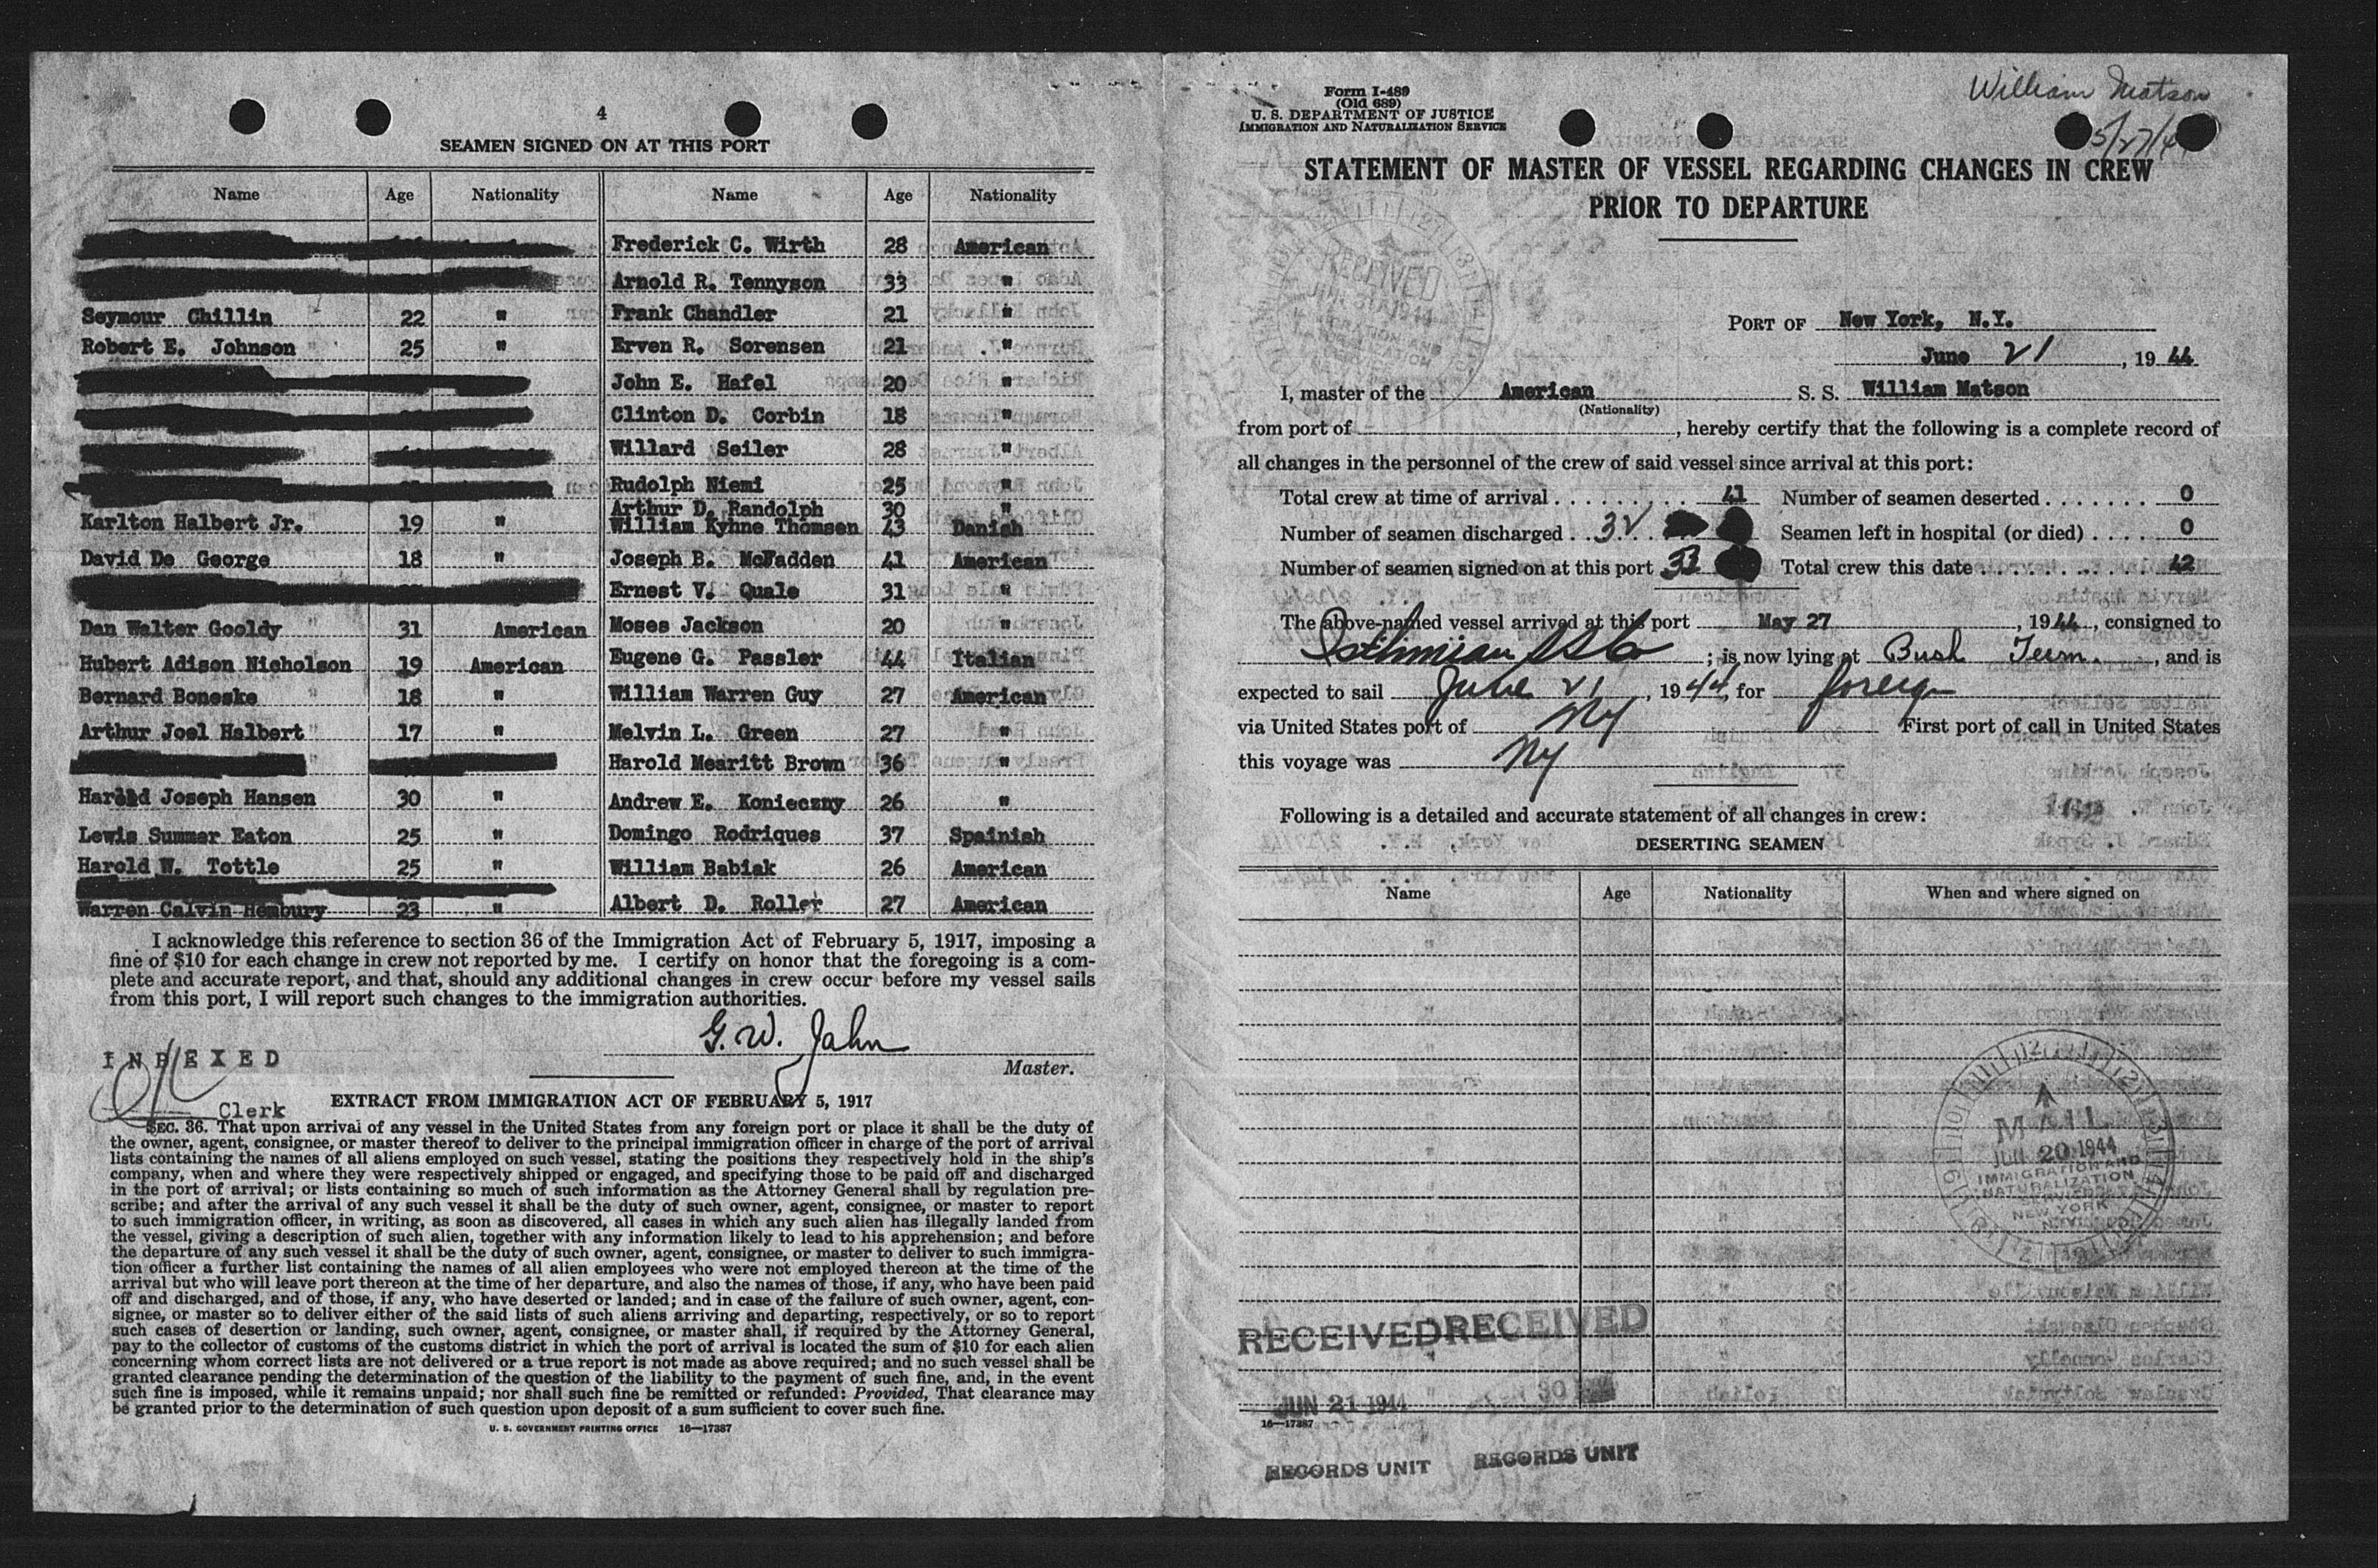 4
SEAMEN SIGNED ON AT THIS PORT
Name Age Nationality Name Age Nationality
Frederick C. Wirth 28 American
Arnold R. Tennyson 33 "
Seymour Chillin 22 " Frank Chandler 21 "
Robert E. Johnson 25 " Erven R. Sorensen 21 "
John E. Hafel 20 "
Clinton D. Corbin 18 "
Willard Seiler 28 "
Rudolph Niemi 25 "
Arthur D. Randolph 30 "
Karlton Halbert Jr. 19 " William Kyhne Thomsen 43 Danish
David De George 18 " Joseph B. McFadden 41 American
Ernest V. Quale 31 "
Dan Walter Gooldy 31 American Moses Jackson 20 "
Hubert Adison Nicholson 19 American Eugene G. Passler 44 Italian
Bernard Boneske 18 " William Warren Guy 27 American
Arthur Joel Halbert 17 " Melvin L. Green 27 "
Harold Mearitt Brown 36 "
Harold Joseph Hansen 30 " Andrew E. Konieczny 26 "
Lewis Summer Eaton 25 " Domingo Rodriques 37 Spainish
Harold W. Tottle 25 " William Babiak 26 American
Warren Calvin Hembury 23 " Albert D. Roller 27 American
I acknowledge this reference to section 36 of the Immigration Act of February 5, 1917, imposing a
fine of $10 for each change in crew not reported by me. I certify on honor that the foregoing is a com-
plete and accurate report, and that, should any additional changes in crew occur before my vessel sails
from this port, I will report such changes to the immigration authorities.
G. W. Jahn
Master.
INDEXED
Clerk
EXTRACT FROM IMMIGRATION ACT OF FEBRUARY 5, 1917
SEC. 36. That upon arrival of any vessel in the United States from any foreign port or place it shall be the duty of
the owner, agent, consignee, or master thereof to deliver to the principal immigration officer in charge of the port of arrival
lists containing the names of all aliens employed on such vessel, stating the positions they respectively hold in the ship's
company, when and where they were respectively shipped or engaged, and specifying those to be paid off and discharged
in the port of arrival; or lists containing so much of such information as the Attorney General shall by regulation pre-
scribe; and after the arrival of any such vessel it shall be the duty of such owner, agent, consignee, or master to report
to such immigration officer, in writing, as soon as discovered, all cases in which any such alien has illegally landed from
the vessel, giving a description of such alien, together with any information likely to lead to his apprehension; and before
the departure of any such vessel it shall be the duty of such owner, agent, consignee, or master to deliver to such immigra-
tion officer a further list containing the names of all alien employees who were not employed thereon at the time of the
arrival but who will leave port thereon at the time of her departure, and also the names of those, if any, who have been paid
off and discharged, and of those, if any, who have deserted or landed; and in case of the failure of such owner, agent, con-
signee, or master so to deliver either of the said lists of such aliens arriving and departing, respectively, or so to report
such cases of desertion or landing, such owner, agent, consignee, or master shall, if required by the Attorney General,
pay to the collector of customs of the customs district in which the port of arrival is located the sum of $10 for each alien
concerning whom correct lists are not delivered or a true report is not made as above required; and no such vessel shall be
granted clearance pending the determination of the question of the liability to the payment of such fine, and, in the event
such fine is imposed, while it remains unpaid; nor shall such fine be remitted or refunded: Provided, That clearance may
be granted prior to the determination of such question upon deposit of a sum sufficient to cover such fine.
U. S. GOVERNMENT PRINTING OFFICE 16—17387
William Matson
Form I-489
(Old 689)
U. S. DEPARTMENT OF JUSTICE
IMMIGRATION AND NATURALIZATION SERVICE
STATEMENT OF MASTER OF VESSEL REGARDING CHANGES IN CREW
PRIOR TO DEPARTURE
PORT OF New York, N.Y.
June 21, 1944
I, master of the American S. S. William Matson
(Nationality)
from port of , hereby certify that the following is a complete record of
all changes in the personnel of the crew of said vessel since arrival at this port:
Total crew at time of arrival 41 Number of seamen deserted 0
Number of seamen discharged 32 Seamen left in hospital (or died) 0
Number of seamen signed on at this port 33 Total crew this date 42
The above-named vessel arrived at this port May 27, 1944, consigned to
Isthmian SS Co ; is now lying at Bush Term. , and is
expected to sail June 21, 1944, for foreign
via United States port of NY First port of call in United States
this voyage was NY
Following is a detailed and accurate statement of all changes in crew:
DESERTING SEAMEN
Name Age Nationality When and where signed on
MAIL
JUN 20 1944
IMMIGRATION AND
NATURALIZATION
SERVICE
NEW YORK
N.Y.
RECEIVED RECEIVED
JUN 21 1944
16—17387
RECORDS UNIT RECORDS UNIT